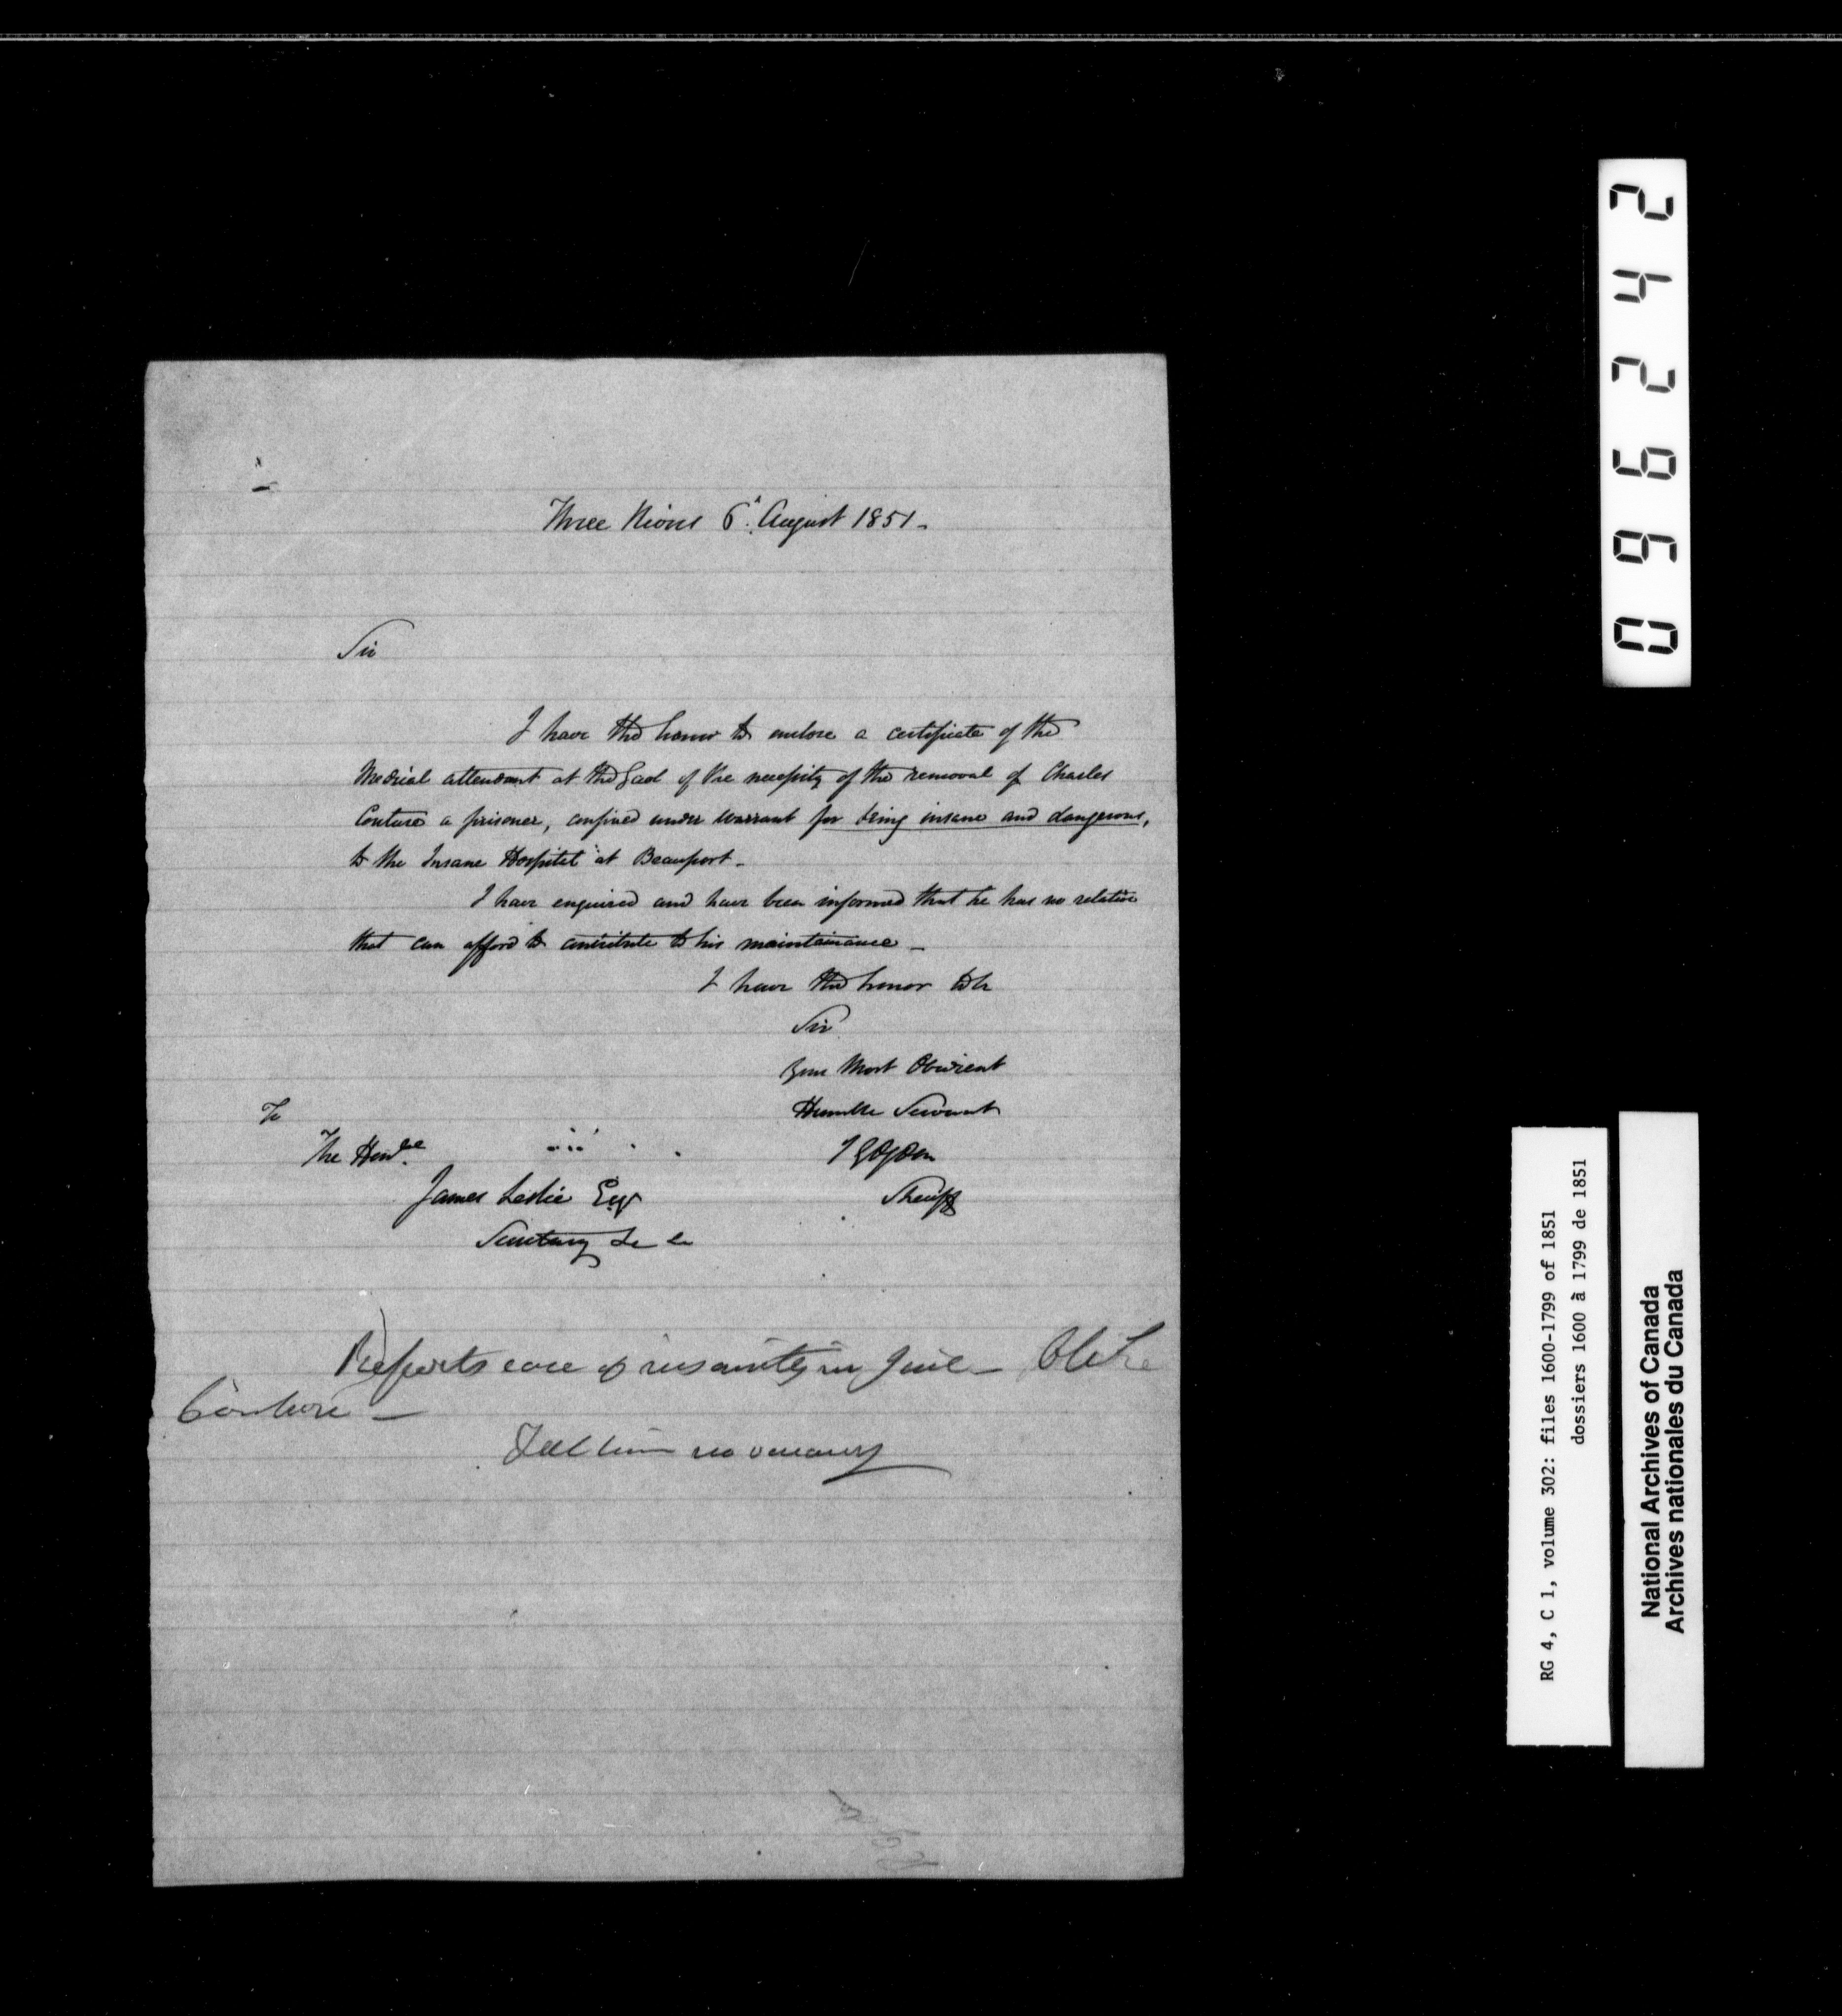 Three Rivers 6th August 1851.
Sir
I have the honor to enclose a certificate of the
Medical attendant at the Gaol of the necessity of the removal of Charles
Couture a prisoner, confined under warrant for being insane and dangerous,
to the Insane Hospital at Beauport.
I have enquired and have been informed that he has no relative
that can afford to contribute to his maintainance
I have the honor to be
Sir
Your Most Obedient
Humble Servant
I G Ogden
Sheriff
To
The Honble
James Leslie Esqr
Secretary &c &c
Reports case of insanity in Jail
Couture
Tell him no vacancy
096242
RG 4, C 1, volume 302: files 1600-1799 of 1851
dossiers 1600 à 1799 de 1851
National Archives of Canada
Archives nationales du Canada